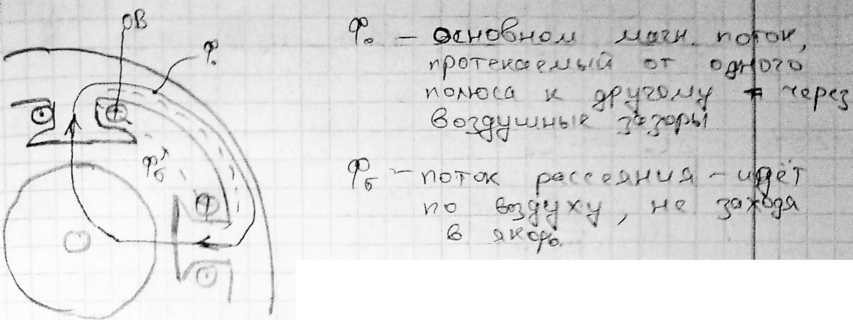 ОВ
Φ₀
Φσ
Φ₀ – Основном магн. поток,
протекаемый от одного
полюса к другому через
воздушные зазоры
Φσ – поток рассеяния – идёт
по воздуху, не заходя
в якорь.